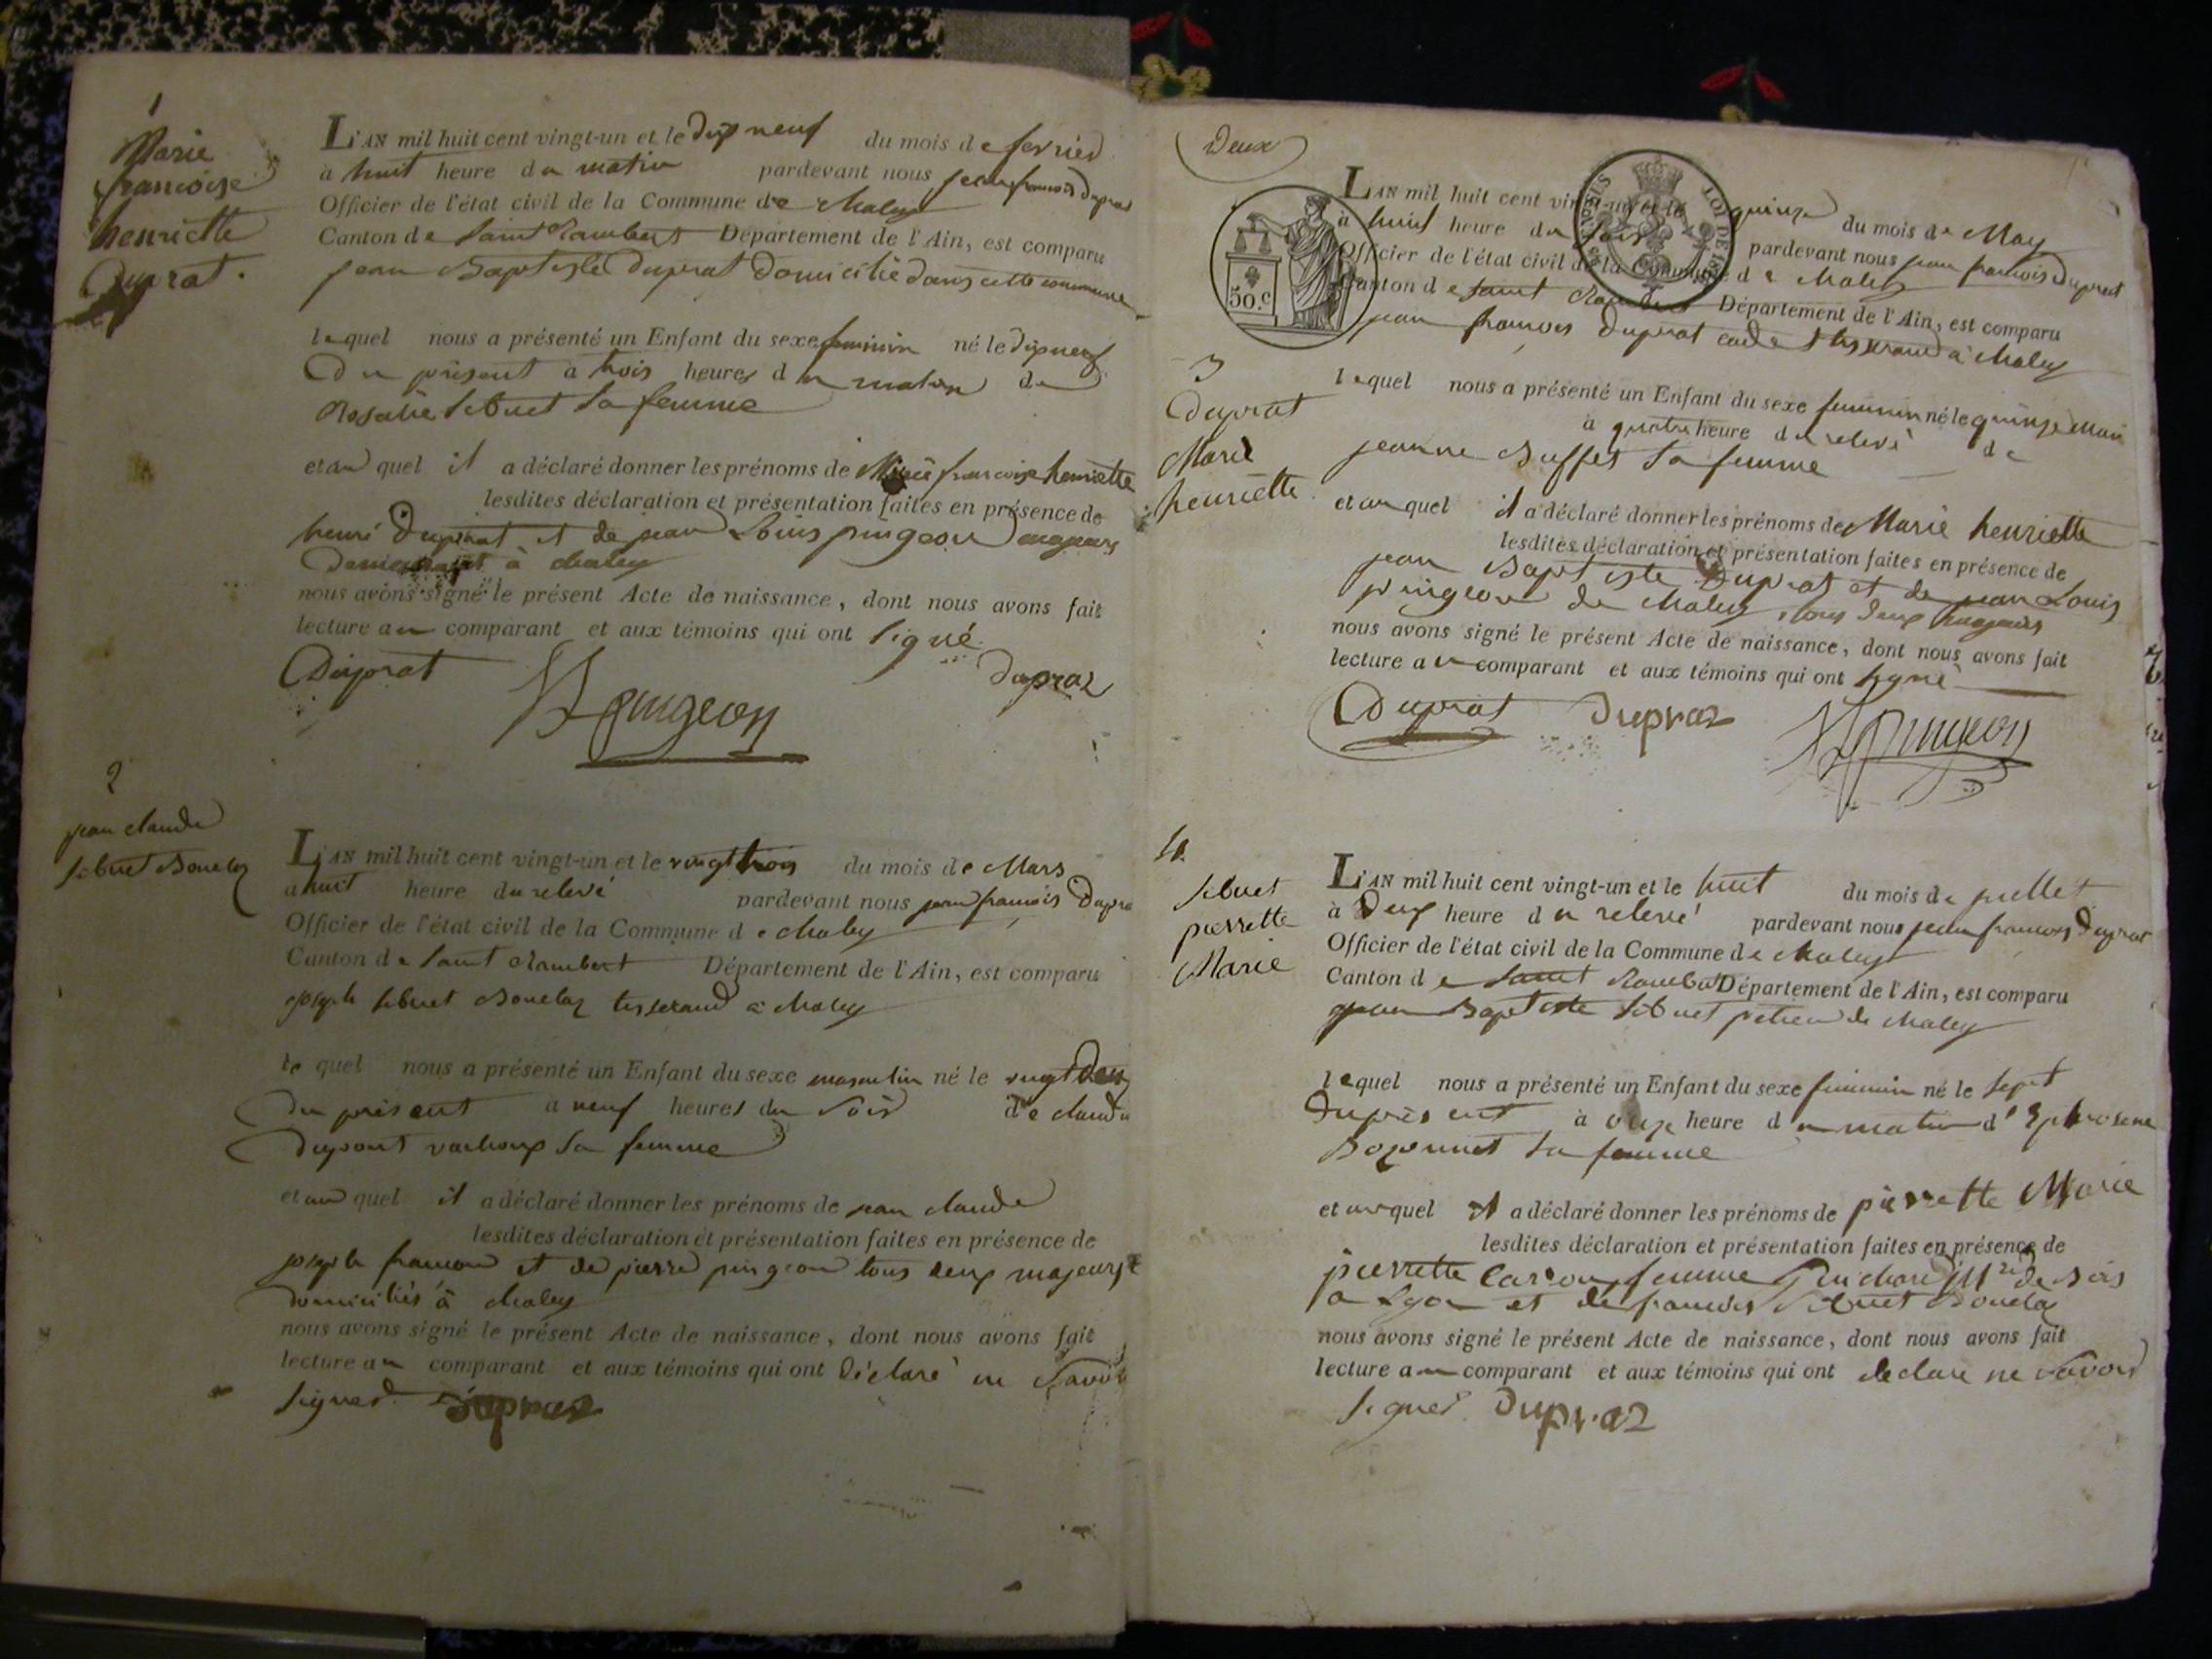 1
Marie
francoise
henriette
Duprat.
L'AN mil huit cent vingt-un et le dix neuf du mois de fevrier
à huit heure du matin pardevant nous jean francois duprat
Officier de l'état civil de la Commune de Chaley
Canton de Saint Rambert Département de l'Ain, est comparu
jean Baptiste duprat Domicilié dans cette commune
lequel nous a présenté un Enfant du sexe feminin né le dix neuf
du présent à trois heures du matin de
Rosalie Sibuet Sa femme
et au quel il a déclaré donner les prénoms de Marie francoise henriette
lesdites déclaration et présentation faites en présence de
henri Duprat et de jean Louis pingeon majeurs
Demeurant à chaley
nous avons signé le présent Acte de naissance, dont nous avons fait
lecture au comparant et aux témoins qui ont Signé.
Duprat pingeon dupraz
2
jean claude
Sibuet Bouclaz
L'AN mil huit cent vingt-un et le vingt trois du mois de Mars
à huit heure du relevé pardevant nous jean francois Dupra
Officier de l'état civil de la Commune de Chaley
Canton de Saint Rambert Département de l'Ain, est comparu
joseph Sibuet Bouclaz tisserand à Chaley
le quel nous a présenté un Enfant du sexe masculin né le vingt deux
du présent à neuf heures du Soir de claudine
dupont Sa femme
et au quel il a déclaré donner les prénoms de jean claude
lesdites déclaration et présentation faites en présence de
joseph francon et de pierre pingeon tous deux majeurs
domiciliés à chaley
nous avons signé le présent Acte de naissance, dont nous avons fait
lecture au comparant et aux témoins qui ont déclaré ne Savoir
Signer. Dupraz
Deux
50.C
LOI DE
L'AN mil huit cent vingt-un et le quinze du mois de May
à huit heure du soir pardevant nous jean francois duprat
Officier de l'état civil de la Commune de Chaley
Canton de Saint Rambert Département de l'Ain, est comparu
jean francois duprat cadet tisserand à Chaley
3
Duprat
Marie
henriette
lequel nous a présenté un Enfant du sexe feminin né le quinze Mai
à quatre heure du relevé de
jeanne Buffet Sa femme
et au quel il a déclaré donner les prénoms de Marie henriette
lesdites déclaration et présentation faites en présence de
jean Baptiste Duprat et de jean Louis
pingeon de Chaley, tous deux majeurs
nous avons signé le présent Acte de naissance, dont nous avons fait
lecture au comparant et aux témoins qui ont Signé
Duprat Dupraz pingeon
4.
Sibuet
pierrette
Marie
L'AN mil huit cent vingt-un et le huit du mois de juillet
à Deux heure du relevé pardevant nous jean francois duprat
Officier de l'état civil de la Commune de Chaley
Canton de Saint Rambert Département de l'Ain, est comparu
jean Baptiste Sibuet de Chaley
lequel nous a présenté un Enfant du sexe feminin né le Sept
du présent à onze heure du matin d'Ephrosene
Bozonnet Sa femme
et au quel il a déclaré donner les prénoms de pierrette Marie
lesdites déclaration et présentation faites en présence de
pierrette femme Guichard de Bois
a Lyon et de francois Sibuet Bouclaz
nous avons signé le présent Acte de naissance, dont nous avons fait
lecture au comparant et aux témoins qui ont declaré ne Savoir
Signer. Dupraz